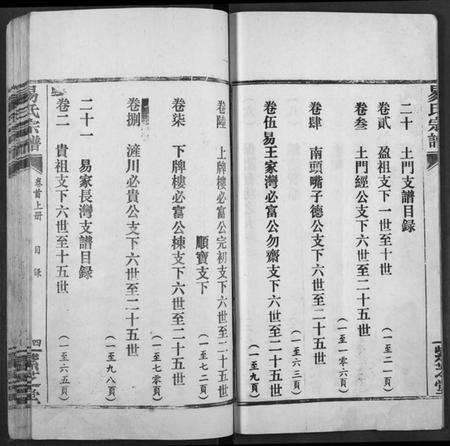 易氏宗譜
二十 土門支譜目錄
卷貳 盈祖支下一世至十世
(一至二一頁)
卷叁 土門經公支下六世至二十五世
(一至一〇六頁)
卷肆 南頭嘴子德公支下六世至二十五世
(一至六三頁)
卷伍 易王家灣必富公勿齋支下六世至二十五世
(一至九頁)
卷陸 上牌樓必富公完初支下六世至二十五世
順寶支下
(一至七二頁)
卷柒 下牌樓必富公棟支下六世至二十五世
(一至七零頁)
卷捌 滻川必貴公支下六世至二十五世
(一至九八頁)
二十一 易家長灣支譜目錄
卷二 貴祖支下六世至十五世
(一至六五頁)
易氏宗譜
卷首上册
目錄
四
紫芝堂